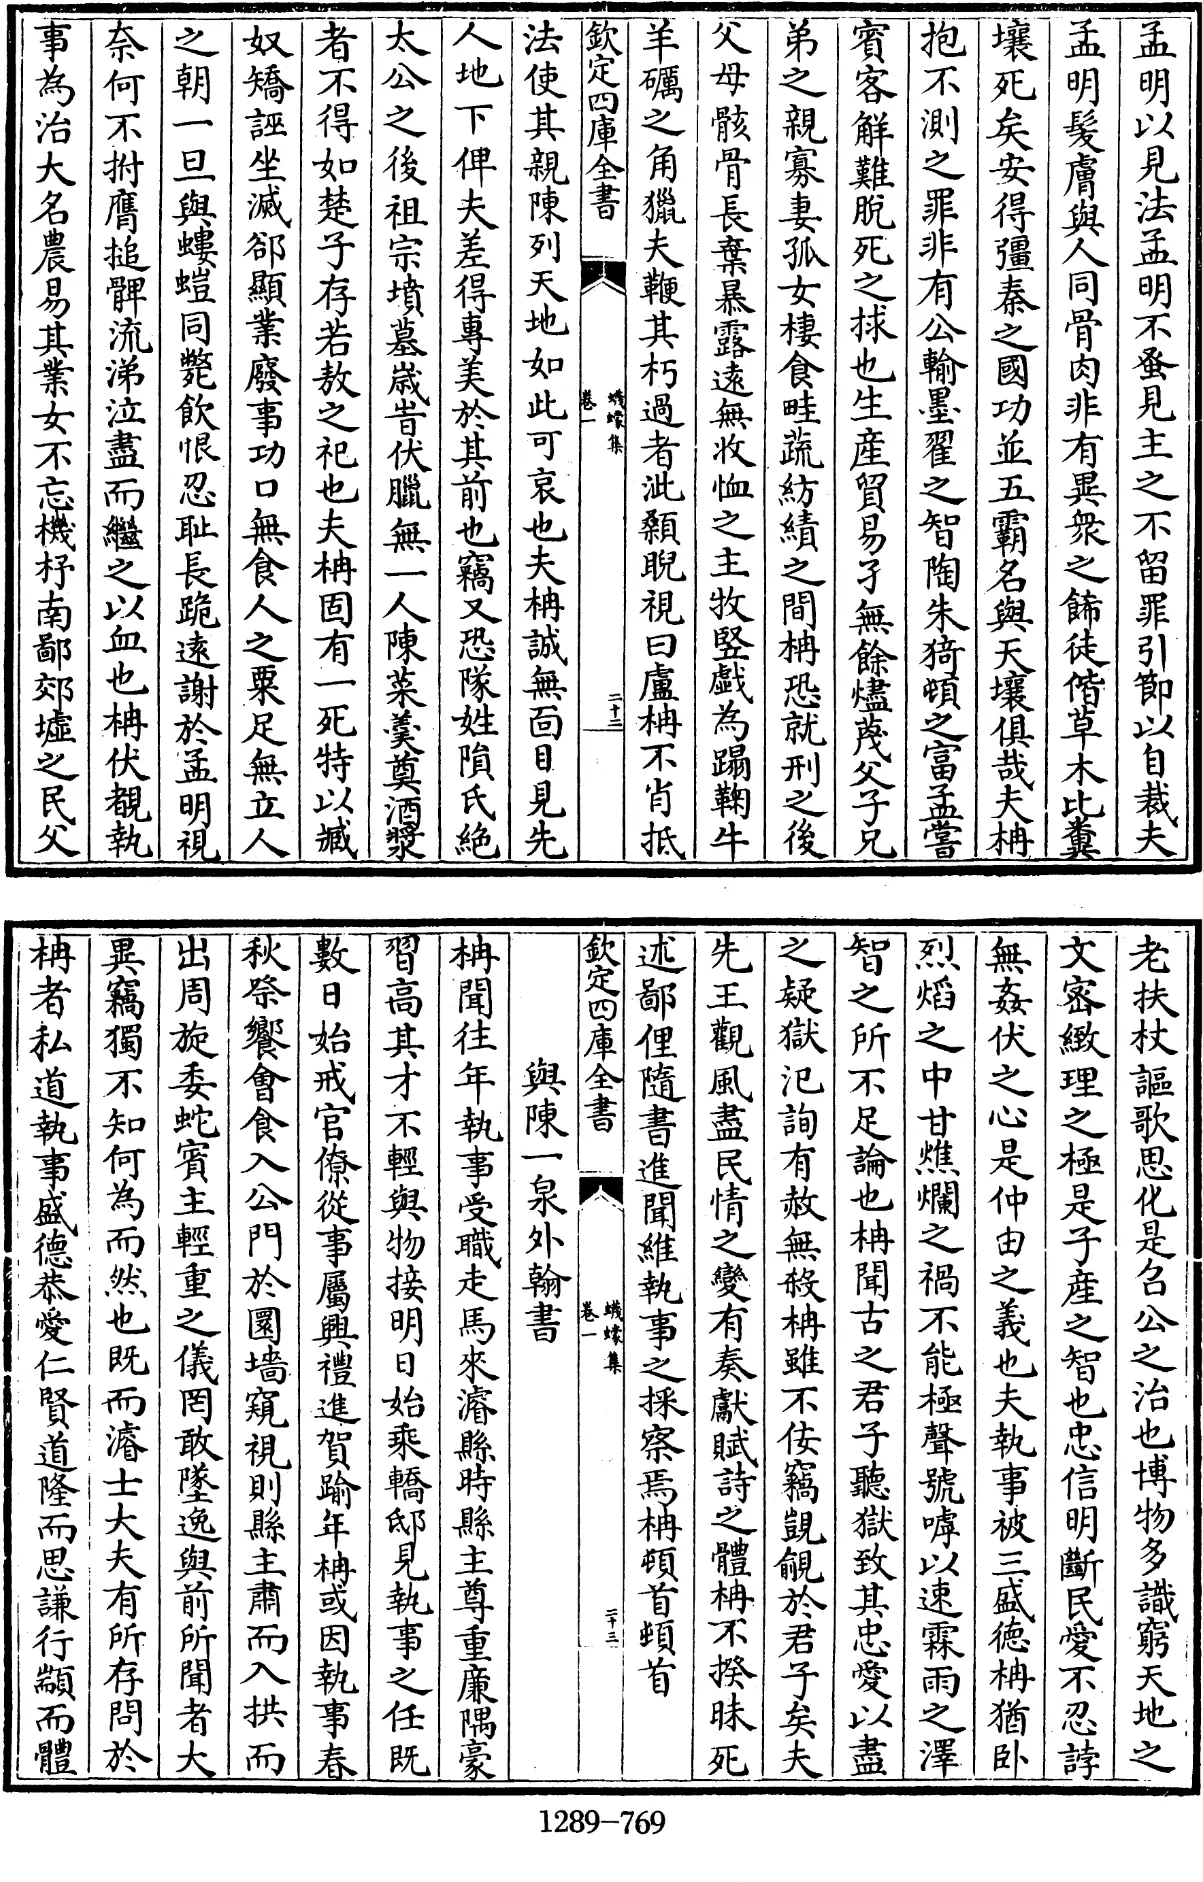 孟明以見法孟明不蚤見主之不留罪引節以自裁夫
孟明髪膚與人同骨肉非有異衆之飾徒偕草木比糞
壤死矣安得彊秦之國功並五霸名與天壤俱哉夫柟
抱不測之罪非有公輸墨翟之智陶朱猗頓之富孟嘗
賓客解難脫死之捄也生産貿易孑無餘燼蔑父子兄
弟之親寡妻孤女棲食畦蔬紡績之間柟恐就刑之後
父母骸骨長棄暴露遠無收恤之主牧豎戲為蹋鞠牛
羊礪之角獵夫鞭其朽過者泚顙睨視曰盧柟不肖抵
欽定四庫全書
蠛蠓集
卷一
二十二
法使其親陳列天地如此可哀也夫柟誠無面目見先
人地下俾夫差得專美於其前也竊又恐隊姓隕氏絶
太公之後祖宗墳墓嵗旹伏臘無一人陳菜羮奠酒漿
者不得如楚子存若敖之祀也夫柟固有一死特以臧
奴矯誣坐滅郤顯業廢事功口無食人之粟足無立人
之朝一旦與螻螘同斃飲恨忍耻長跪逺謝於孟明視
奈何不拊膺搥髀流涕泣盡而繼之以血也柟伏覩執
事為治大名農易其業女不忘機杼南鄙郊墟之民父
老扶杖謳歌思化是召公之治也博物多識窮天地之
文密緻理之極是子產之智也忠信明斷民愛不忍誖
無姦伏之心是仲由之義也夫執事被三盛德柟猶卧
烈熖之中甘燋爛之禍不能極聲號嘑以速霖雨之澤
智之所不足論也柟聞古之君子聽獄致其忠愛以盡
之疑獄汜詢有赦無敎柟雖不佞竊覬覦於君子矣夫
先王觀風盡民情之變有奏獻賦詩之體柟不揆昧死
述鄙俚隨書進聞維執事之採察焉柟頓首頓首
欽定四庫全書
蠛蠓集
卷一
二十三
與陳一泉外翰書
柟聞往年執事受職走馬來濬縣時縣主尊重廉隅豪
習高其才不輕與物接明日始乘轎邸見執事之任既
數日始戒官僚從事屬興禮進賀踰年柟或因執事春
秋祭饗會食入公門於圜墻窺視則縣主肅而入拱而
出周旋委蛇賓主輕重之儀罔敢墜逸與前所聞者大
異竊獨不知何為而然也既而濬士大夫有所存問於
柟者私道執事盛德恭愛仁賢道隆而思謙行顓而體
1289-769